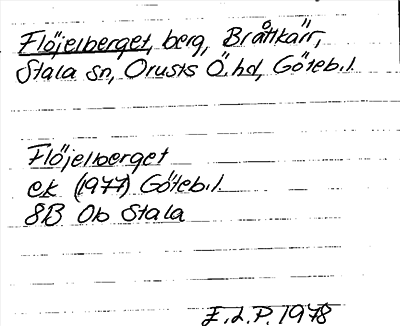 Flöjelberget, berg, Bråttkärr,
Stala sn, Orusts Ö. hd, Göteb. l.
Flöjelberget
ek (1977) Göteb. l.
8B 0b Stala
E.L.P. 1978